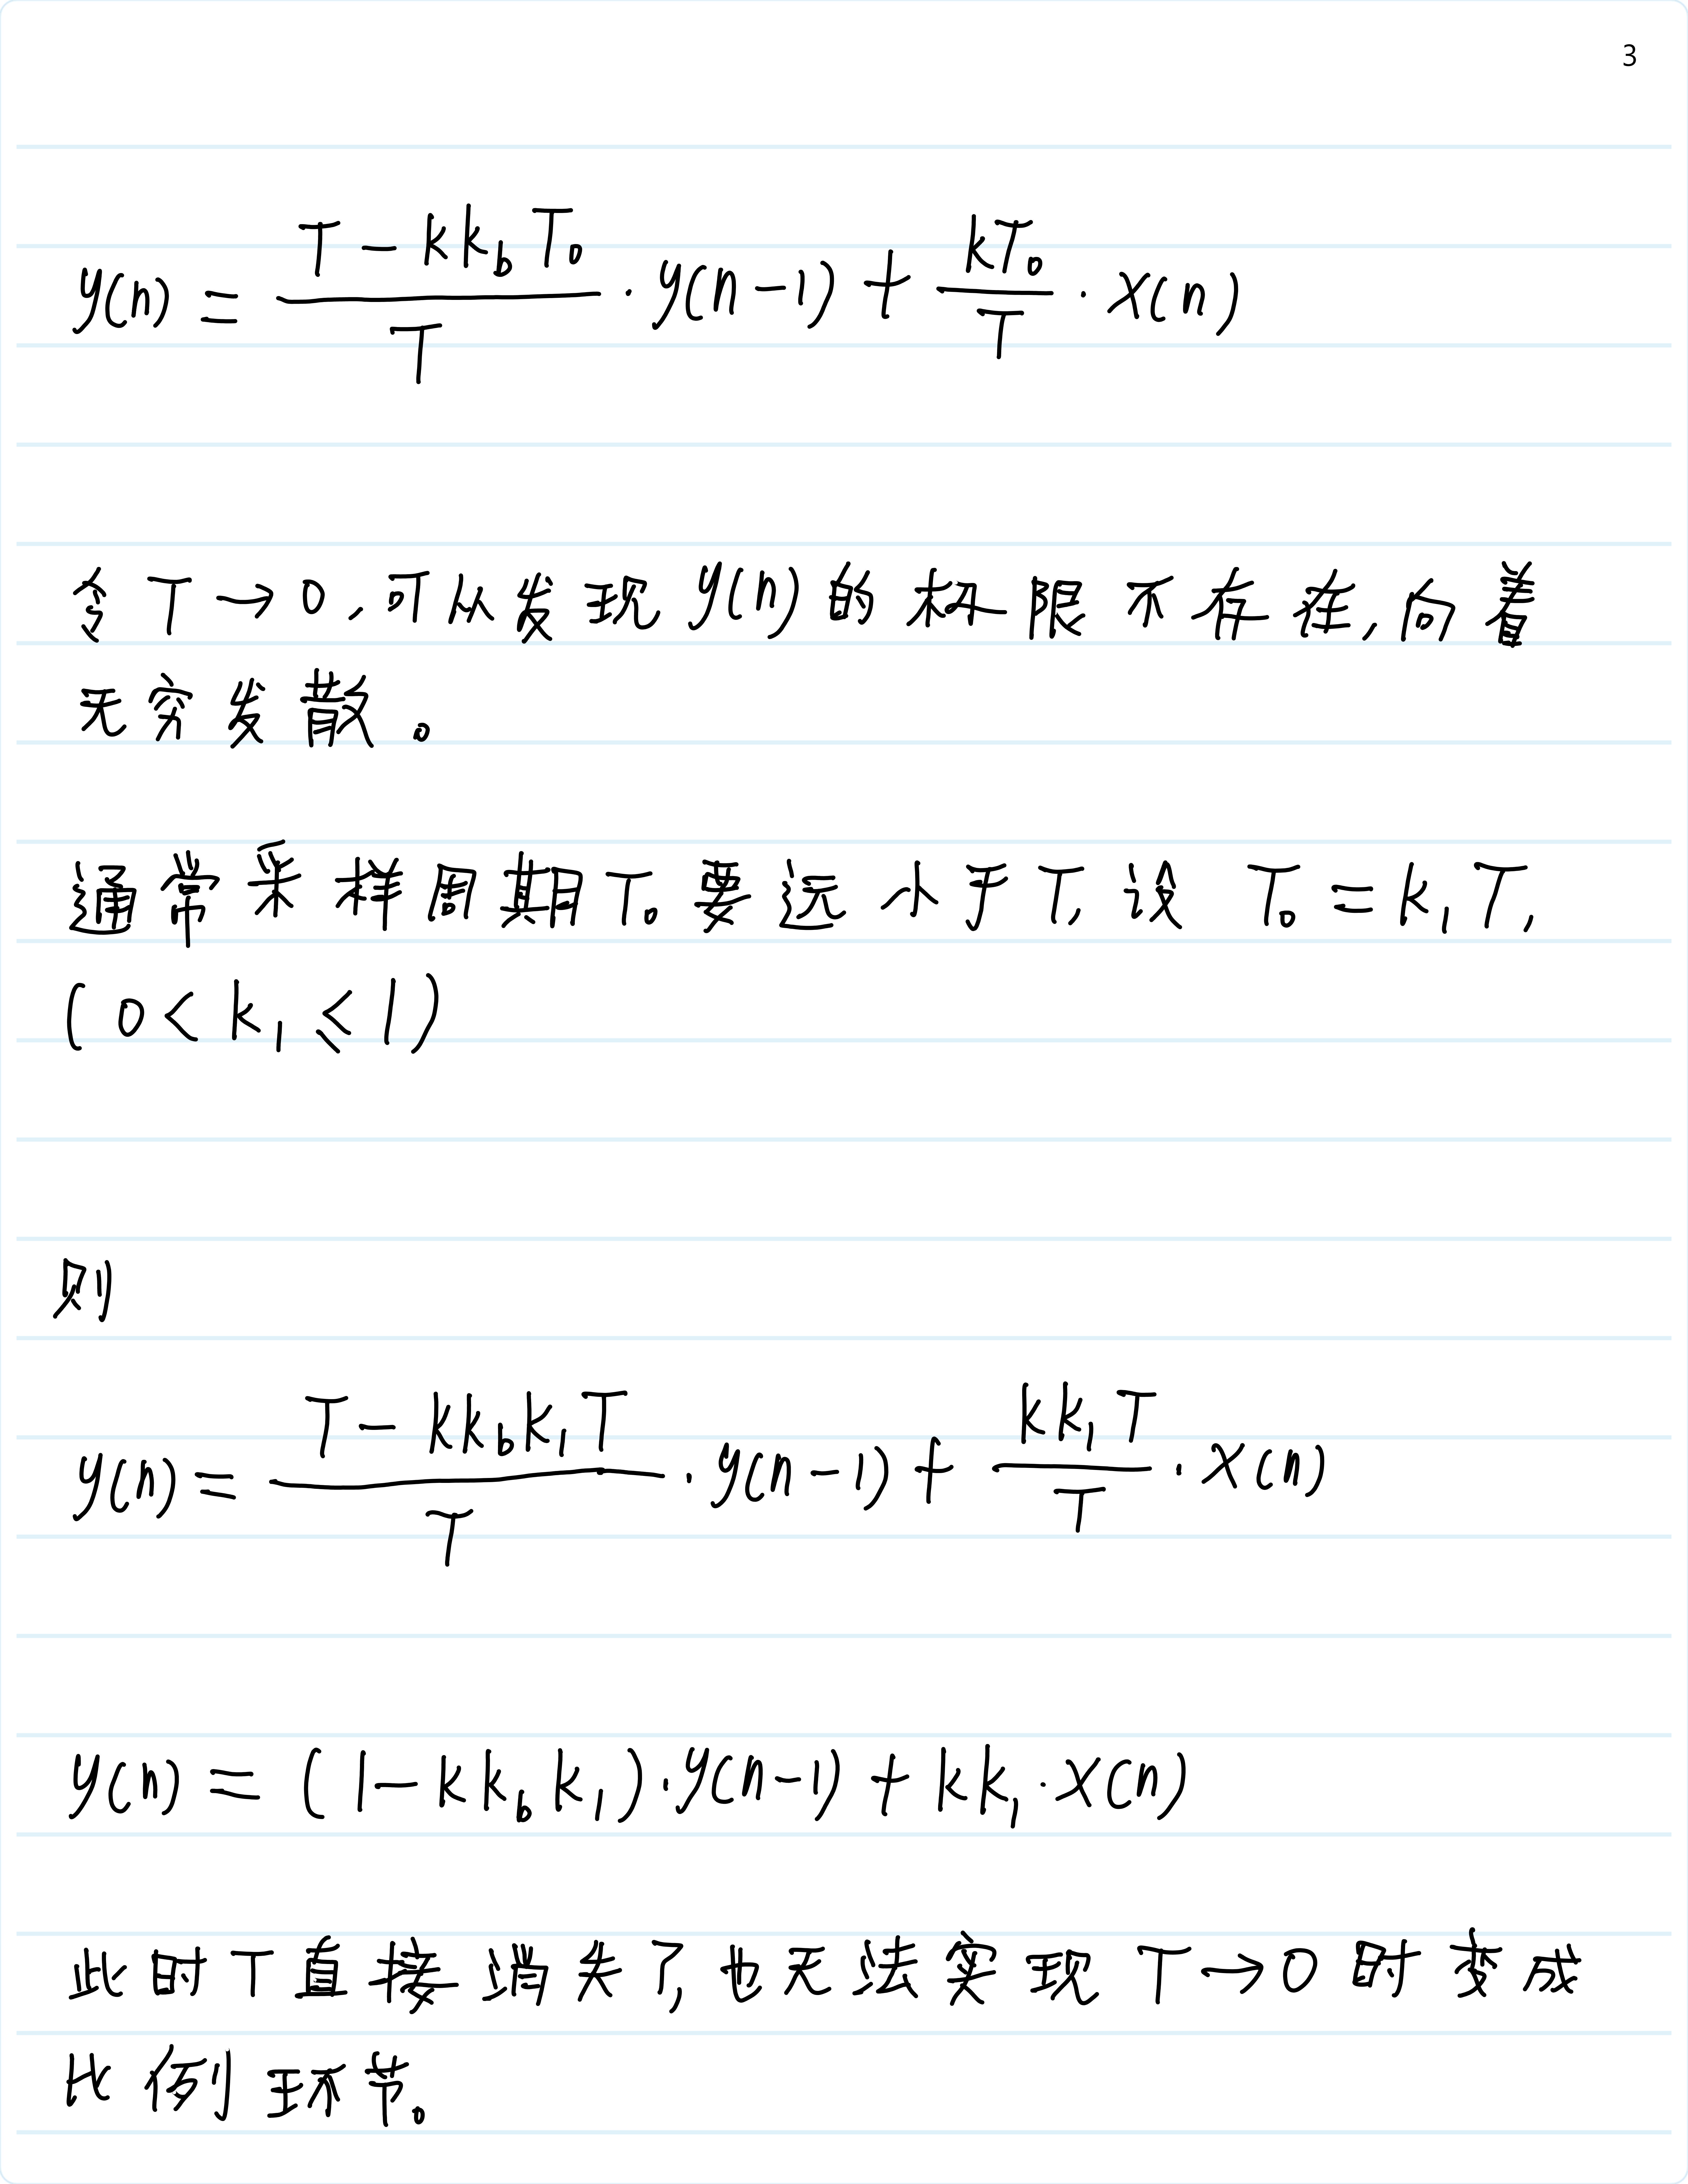 3
y(n) = (T - kk_bT_0)/T · y(n-1) + kT_0/T · x(n)
令 T→0,可以发现 y(n) 的极限不存在,向着
无穷发散。
通常采样周期 T_0 要远小于 T, 设 T_0 = k_1T,
(0 < k_1 ≤ 1)
则
y(n) = (T - kk_bk_1T)/T · y(n-1) + kk_1T/T · x(n)
y(n) = (1 - kk_bk_1)·y(n-1) + kk_1·x(n)
此时T直接消失了,也无法实现 T→0 时变成
比例环节。